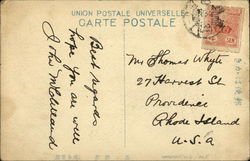 UNION POSTALE UNIVERSELLE
CARTE POSTALE
Best regards
hope you are well
John
Mr Thomas Whyte
27 Harvest St.
Providence
Rhode Island
U.S.A